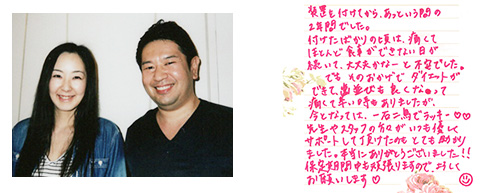 装置を付けてから、あっという間の
2年間でした。
付けたばかりの頃は、痛くて
ほとんど食事ができない日が
続いて、大丈夫かなーと不安でした。
でも そのおかげで ダイエットが
できて、歯並びも良くなって
痛くて辛い時もありましたが、
今となっては、一石二鳥でラッキー♡♡
先生やスタッフの方々がいつも優しく
サポートして頂けたのもとても助かり
ました。本当にありがとうございました!!
保定期間中も頑張りますので、よろしく
お願いします♡